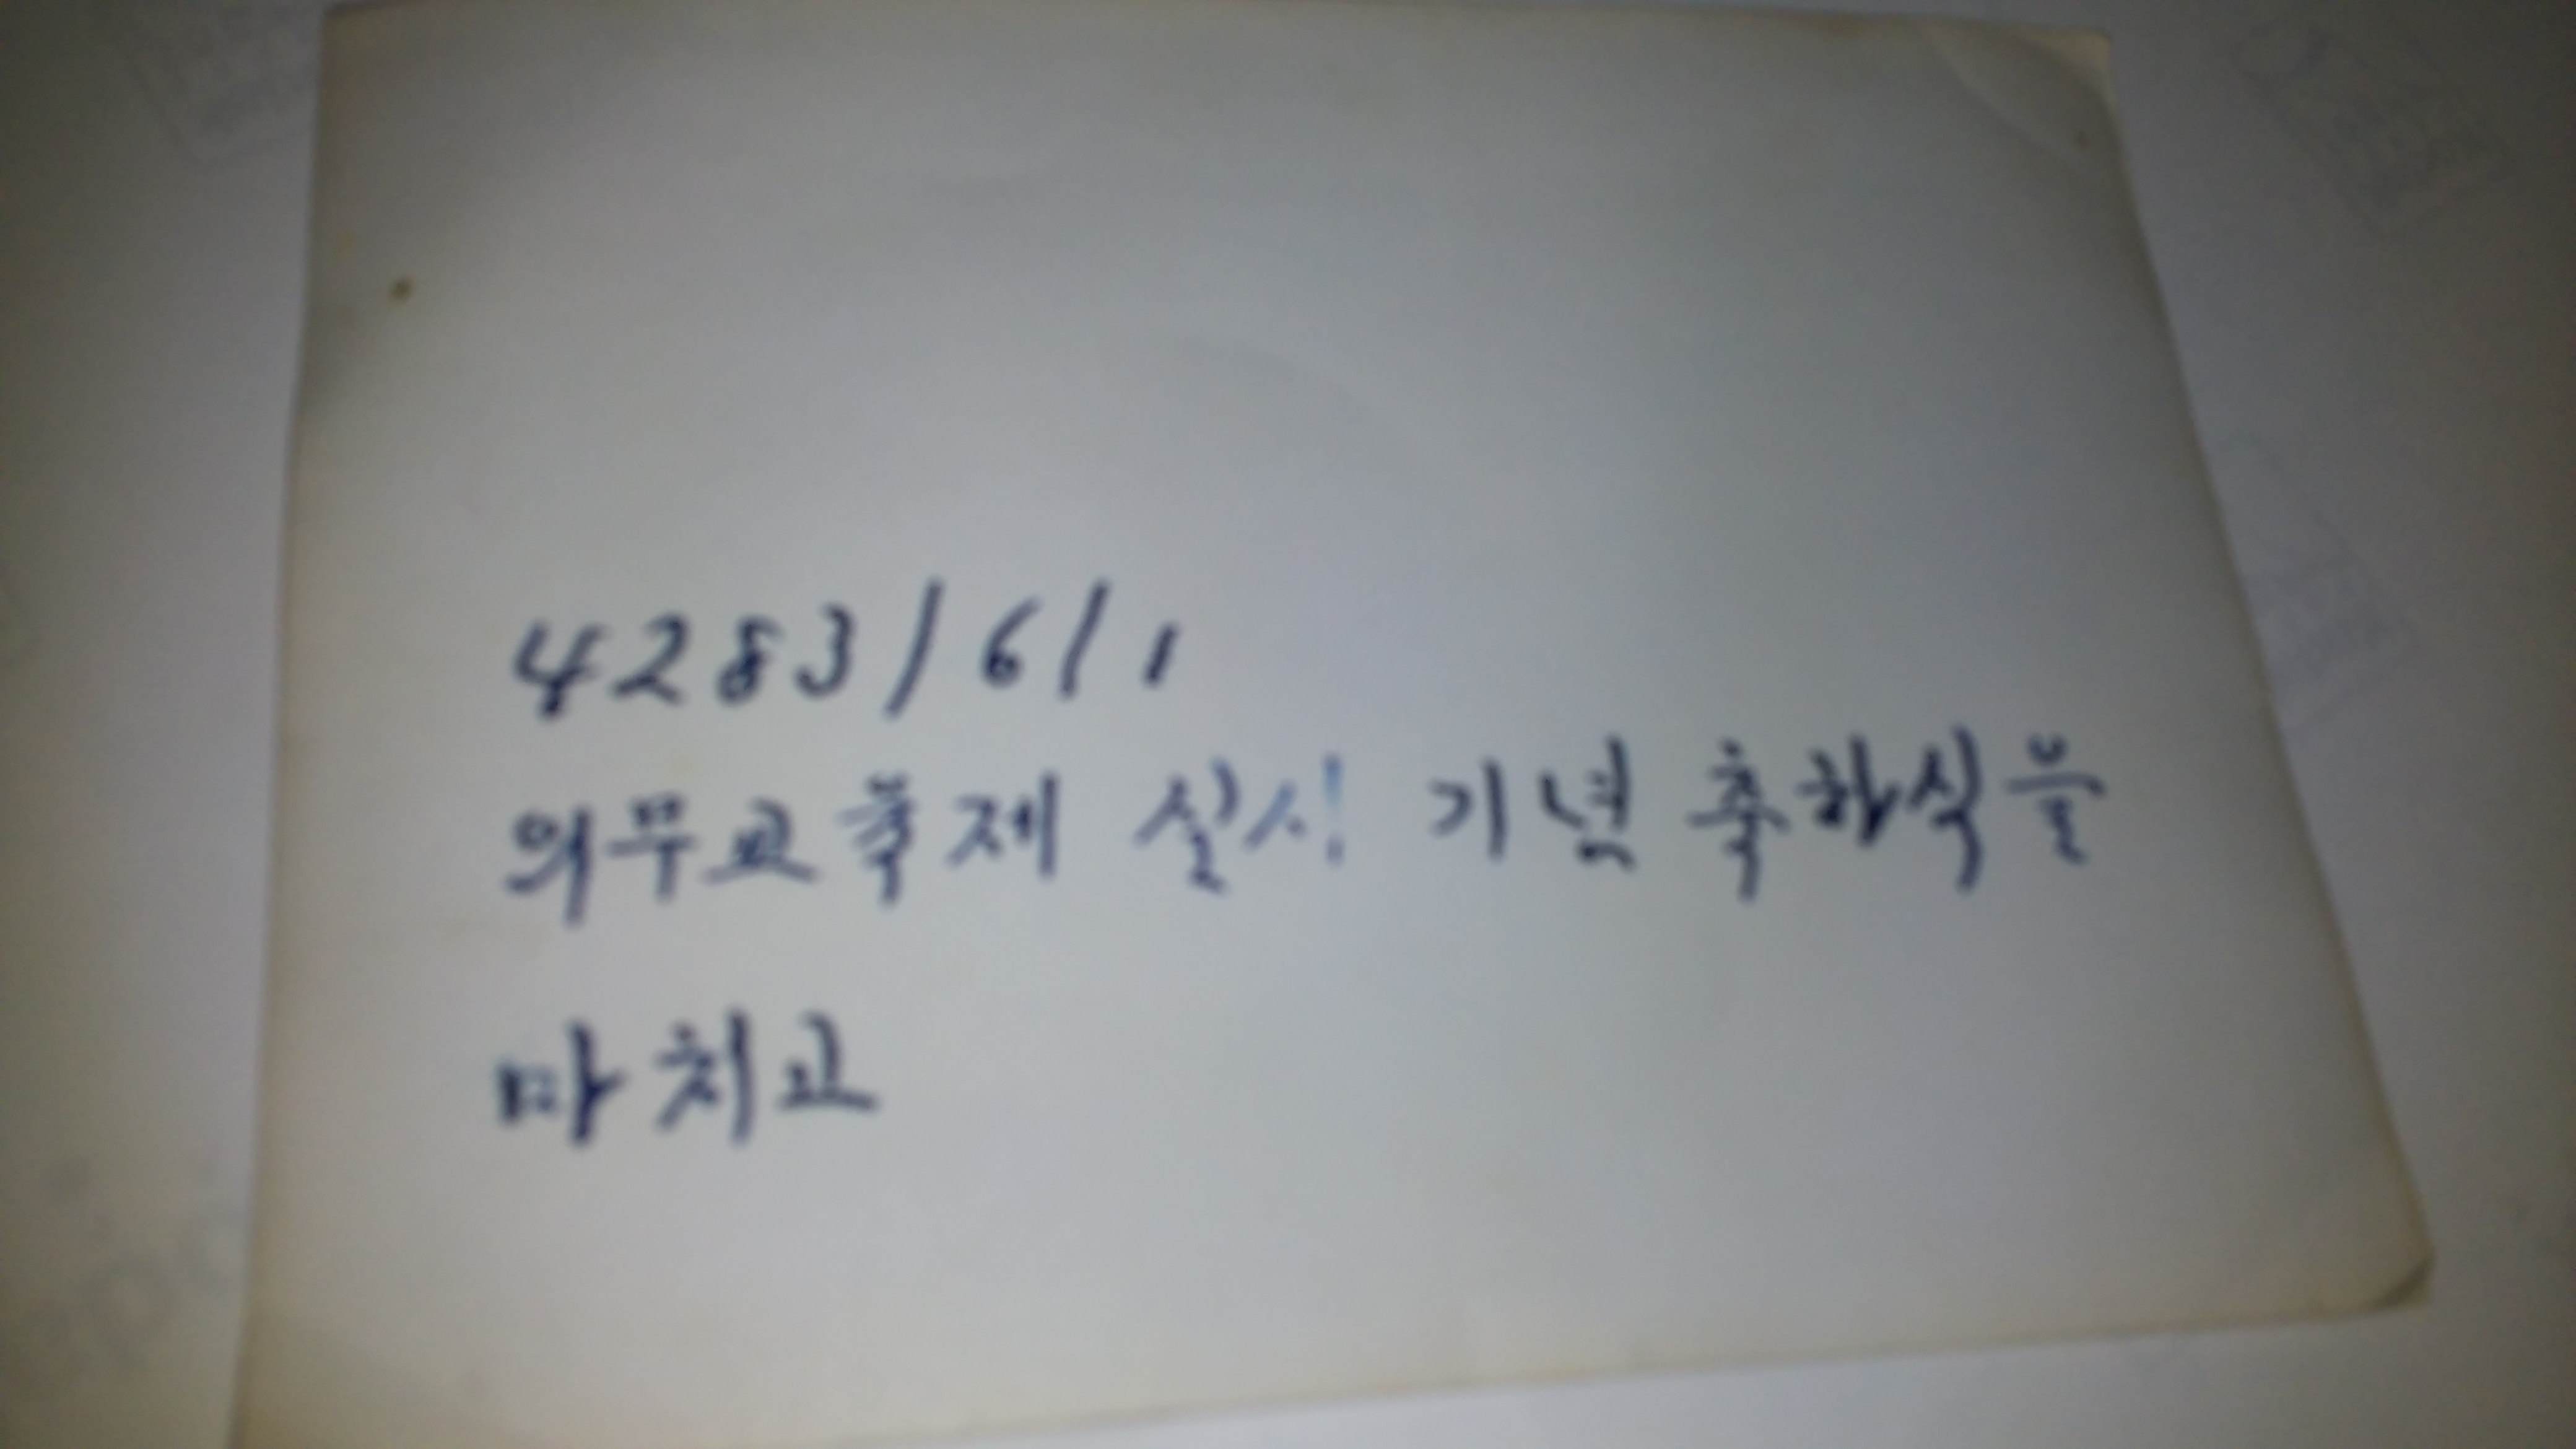 4283/6/1
의무교육제 실시 기념 축하식을
마치고